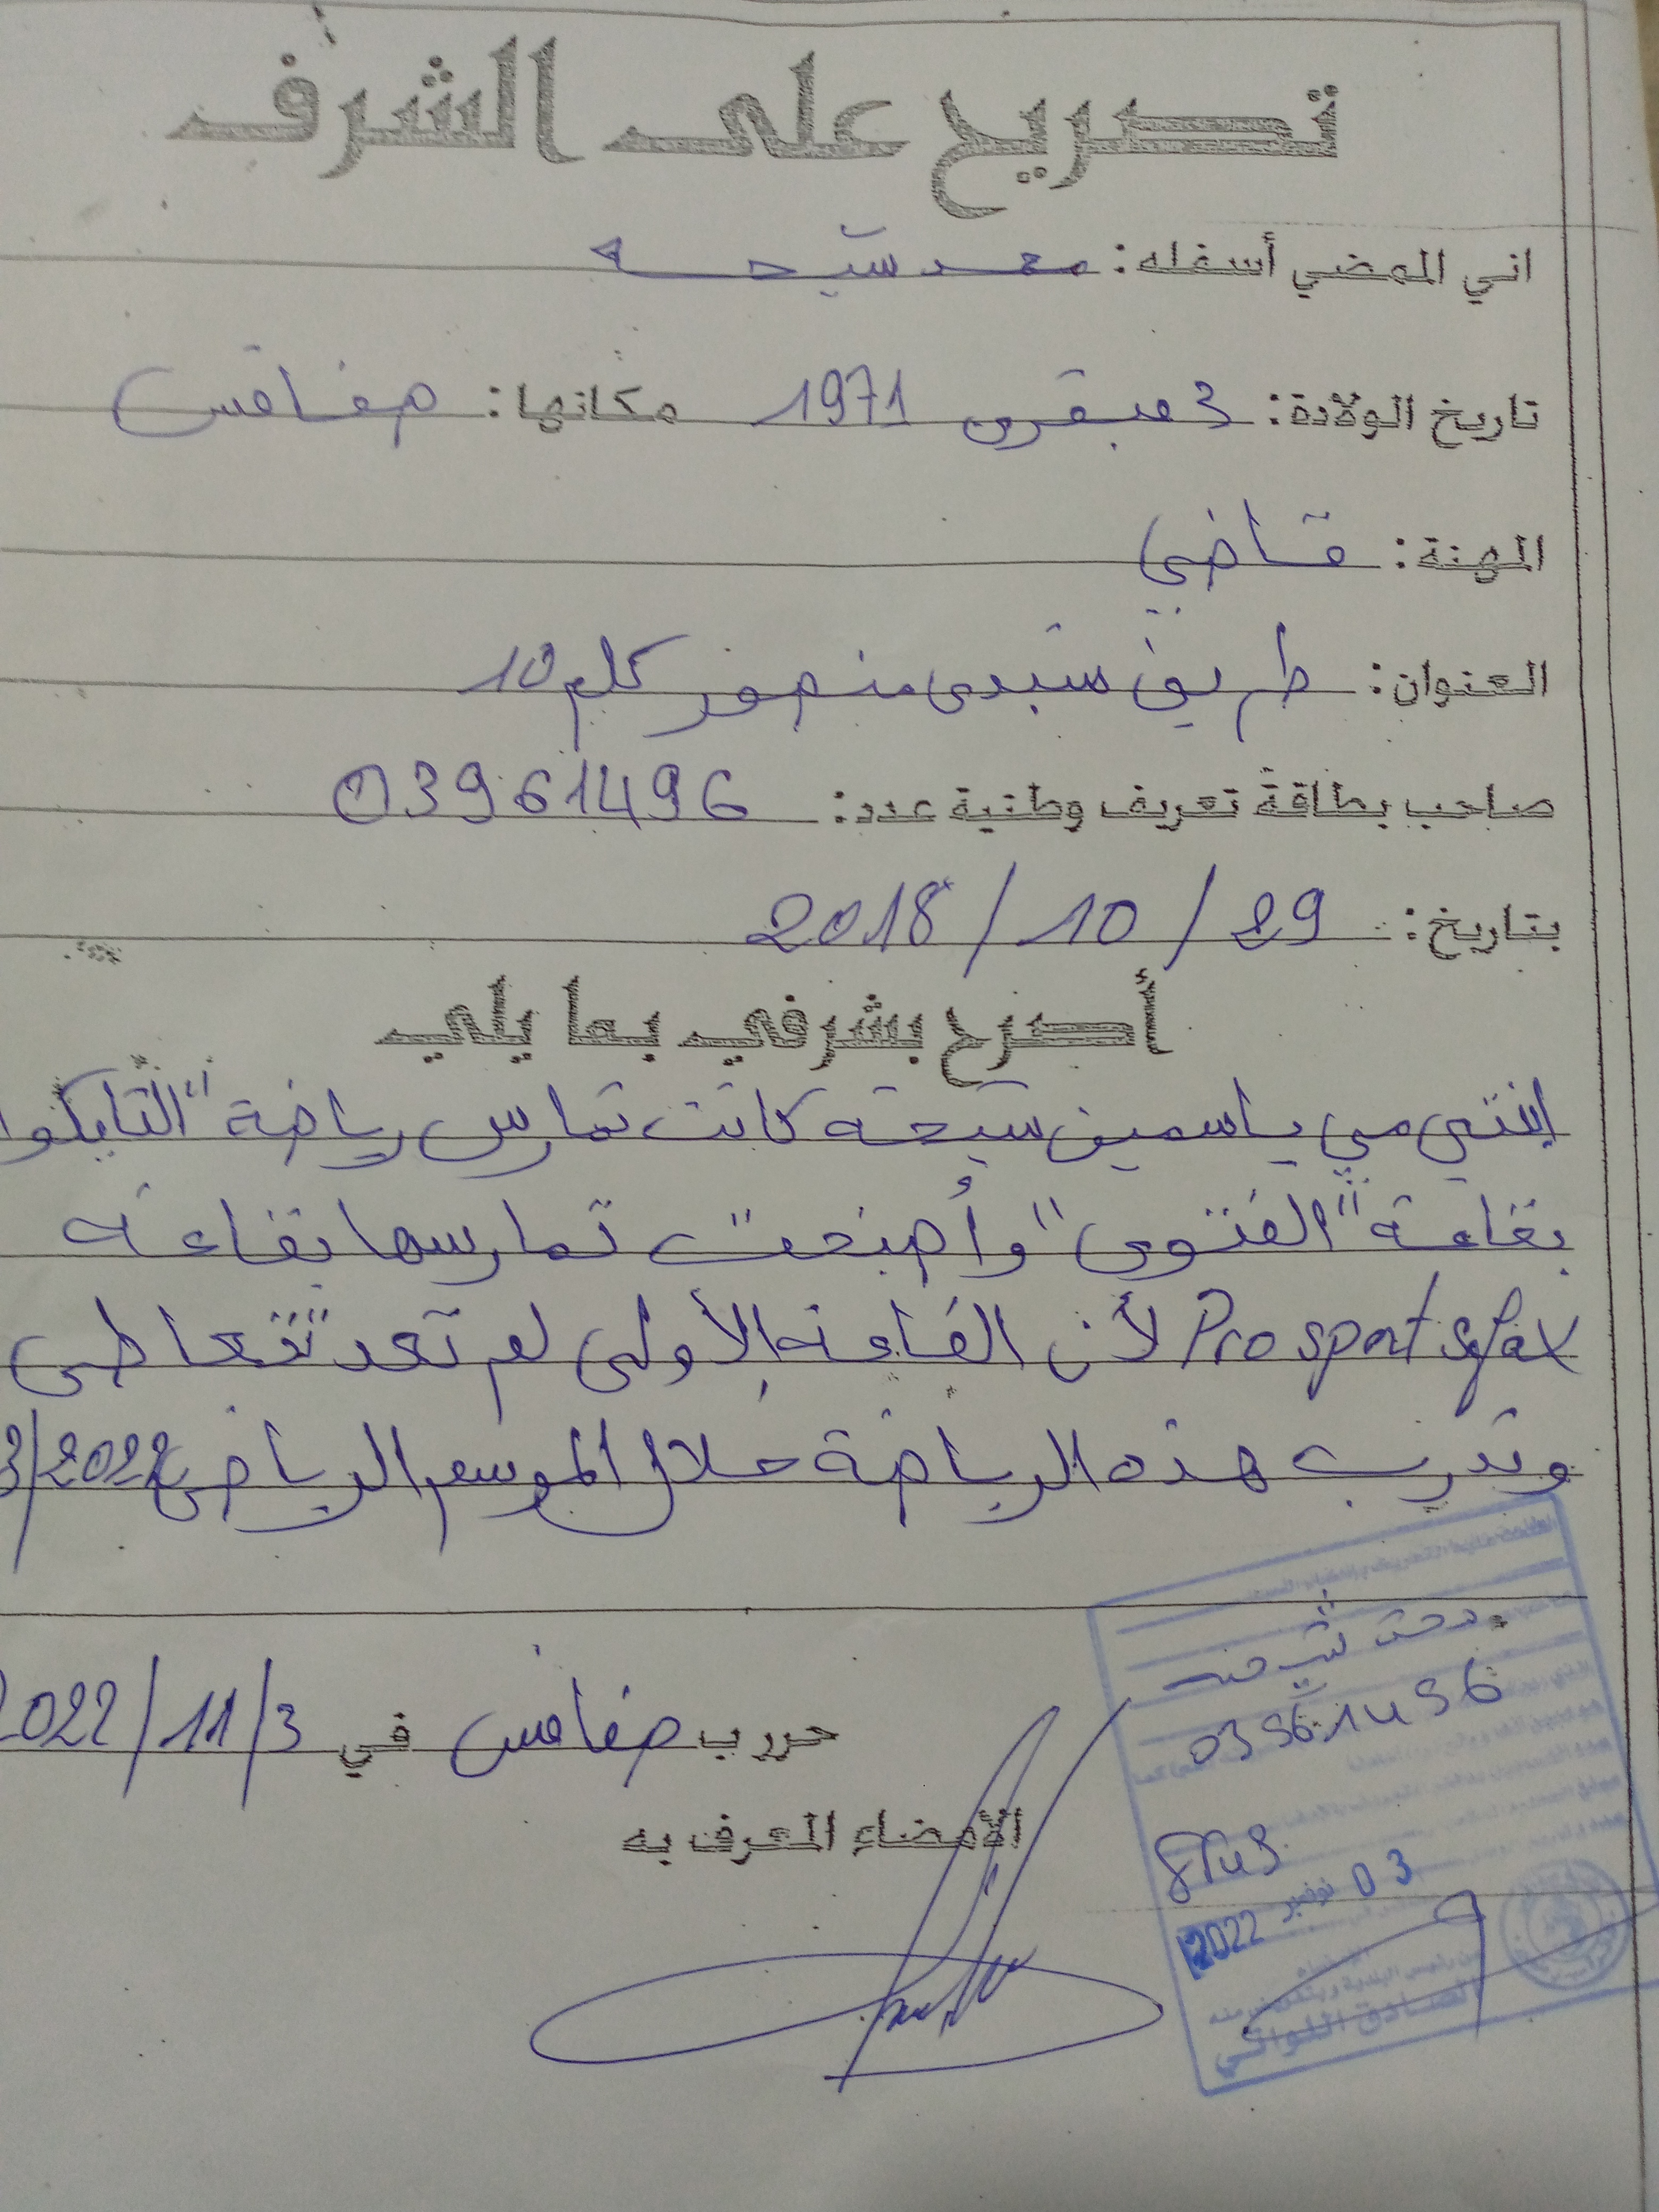 تصريح على الشرف
اني الممضي أسفله: محمد شيحه
تاريخ الولادة: 3 فيفري 1971 مكانها: صفاقس
المهنة: قاضي
العنوان: طريق سيدي منصور كلم 10
صاحب بطاقة تعريف وطنية عدد: 03961496
بتاريخ: 29 / 10 / 2018
أصرح بشرفي بما يلي
ابنتي مي ياسمين شيحة كانت تمارس رياضة "التايكوا
بقاعة "الفتوى" وأصبحت تمارسها بقاعة
Pro sport sfax لأن القاعة الأولى لم تعد تتعاطى
وتدرب هذه الرياضة خلال الموسم الرياضي 2022/3
حرر ب صفاقس في 3/11/2022
الأمضاء المعرف به
03961496
03 نوفمبر 2022
الصادق اللواتي